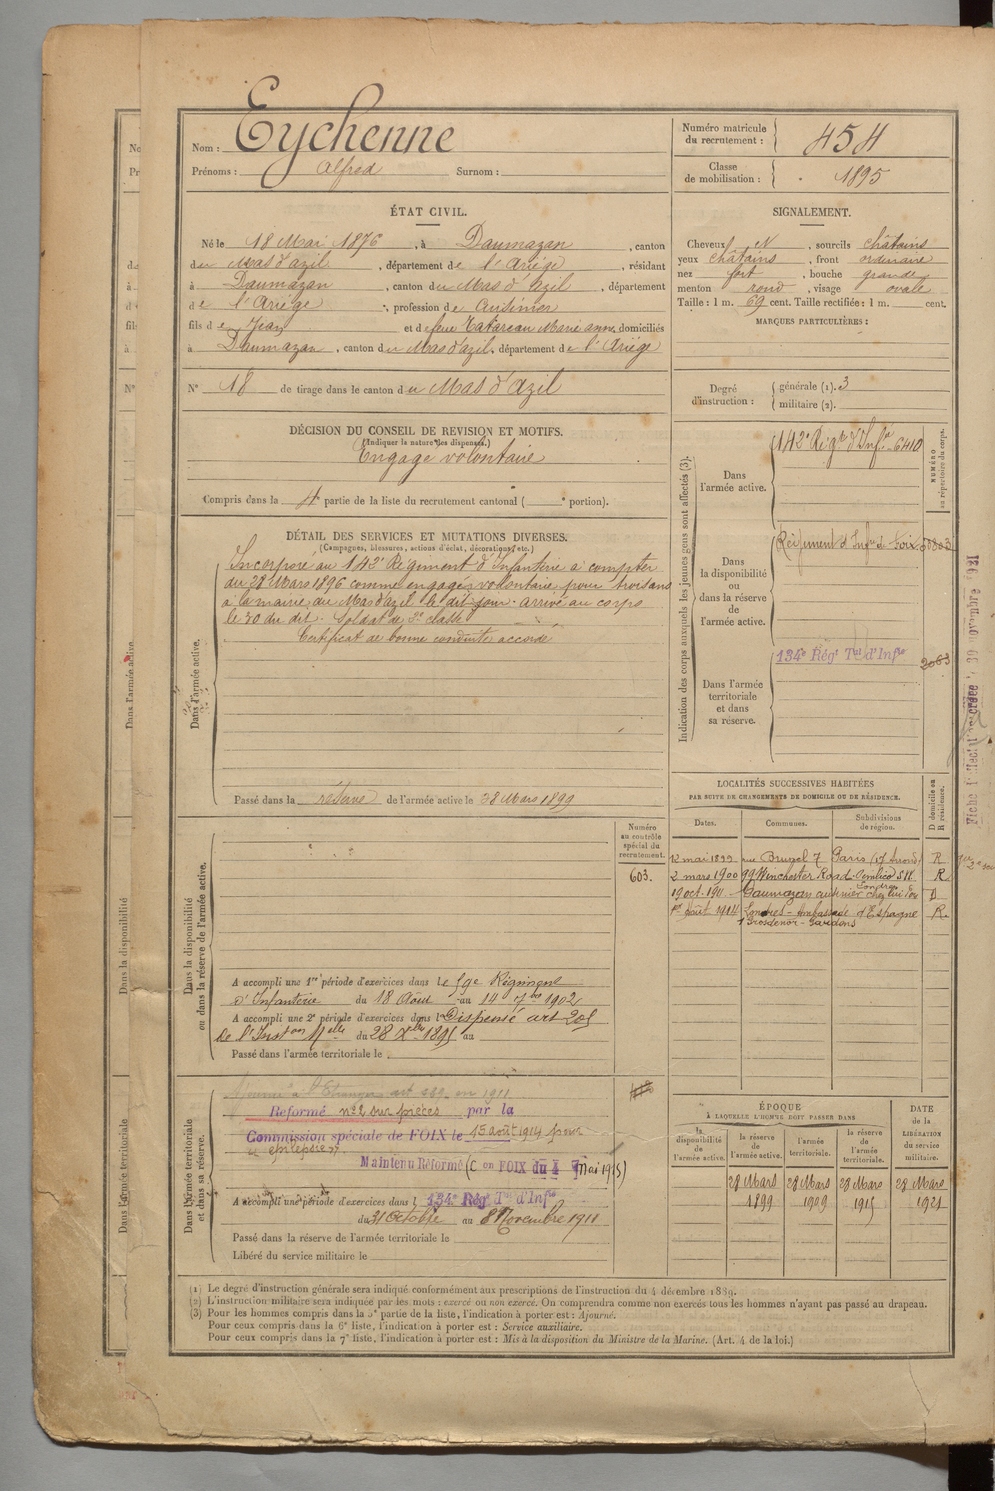 Nom : Eychenne
Prénoms : Alfred Surnom :
Numéro matricule du recrutement : 454
Classe de mobilisation : 1895
ÉTAT CIVIL.
Né le 18 Mai 1876, à Daumazan, canton
du Mas d'azil, département de l'Ariège, résidant
à Daumazan, canton du Mas d'Azil, département
de l'Ariège, profession de Cuisinier
fils de Jean et de feue Marie anne, domiciliés
à Daumazan, canton du Mas d'azil, département de l'Ariège
N° 18 de tirage dans le canton du Mas d'Azil
SIGNALEMENT.
Cheveux N, sourcils châtains
yeux châtains, front ordinaire
nez fort, bouche grande
menton rond, visage ovale
Taille : 1 m. 69 cent. Taille rectifiée : 1 m. cent.
MARQUES PARTICULIÈRES :
Degré d'instruction : générale (1). 3
militaire (2).
DÉCISION DU CONSEIL DE REVISION ET MOTIFS.
(Indiquer la nature des dispenses.)
Engagé volontaire
Compris dans la 4e partie de la liste du recrutement cantonal ( e portion).
DÉTAIL DES SERVICES ET MUTATIONS DIVERSES.
(Campagnes, blessures, actions d'éclat, décorations, etc.)
Dans l'armée active.
Incorporé au 142e Régiment d'Infanterie à compter
du 28 Mars 1896 comme engagé volontaire pour trois ans
à la mairie du Mas d'azil le dit jour. arrivé au corps
le 30 du dit. Soldat de 2e classe
Certificat de bonne conduite accordé
Passé dans la réserve de l'armée active le 28 Mars 1899
Indication des corps auxquels les jeunes gens sont affectés (3).
NUMÉRO au répertoire du corps.
Dans l'armée active.
142e Régt d'Infie 6410
Dans la disponibilité ou dans la réserve de l'armée active.
Régiment d'Infie de Foix
Dans l'armée territoriale et dans sa réserve.
134e Régt Tal d'Infie 2063
LOCALITÉS SUCCESSIVES HABITÉES
PAR SUITE DE CHANGEMENTS DE DOMICILE OU DE RÉSIDENCE.
Dates. Communes. Subdivisions de région. D domicile ou R résidence.
12 mai 1899 rue Brugel 7 Paris (17 Arrond) R
2 mars 1900 99 Winchester Road Pimlico S.W. Londres R
19 oct. 1911 Daumazan D
1er août 1914 Londres - Ambassade d'Espagne R
1 Grosdenor - Gardons
Dans la disponibilité ou dans la réserve de l'armée active.
Numéro au contrôle spécial du recrutement.
603.
A accompli une 1re période d'exercices dans le 59e Régiment
d'Infanterie du 18 Août au 14 7bre 1902
A accompli une 2e période d'exercices dans l Dispensé art 205
de l'Inston Melle du 28 Xbre 1895 au
Passé dans l'armée territoriale le
Dans l'armée territoriale et dans sa réserve.
Réformé n°2 sur pièces par la
Commission spéciale de FOIX le 15 août 1914 pour
épilepsie
Maintenu Réformé (C on FOIX du 4 Mai 1915)
A accompli une période d'exercices dans l 134e Régt Tal d'Infie
du 31 Octobre au 8 Novembre 1911
Passé dans la réserve de l'armée territoriale le
Libéré du service militaire le
ÉPOQUE
À LAQUELLE L'HOMME DOIT PASSER DANS
la disponibilité de l'armée active. la réserve de l'armée active. l'armée territoriale. la réserve de l'armée territoriale.
DATE de la LIBÉRATION du service militaire.
28 Mars 1899 28 Mars 1909 28 Mars 1915 28 Mars 1921
(1) Le degré d'instruction générale sera indiqué conformément aux prescriptions de l'instruction du 4 décembre 1889.
(2) L'instruction militaire sera indiquée par les mots : exercé ou non exercé. On comprendra comme non exercés tous les hommes n'ayant pas passé au drapeau.
(3) Pour les hommes compris dans la 5e partie de la liste, l'indication à porter est : Ajourné.
Pour ceux compris dans la 6e liste, l'indication à porter est : Service auxiliaire.
Pour ceux compris dans la 7e liste, l'indication à porter est : Mis à la disposition du Ministre de la Marine. (Art. 4 de la loi.)